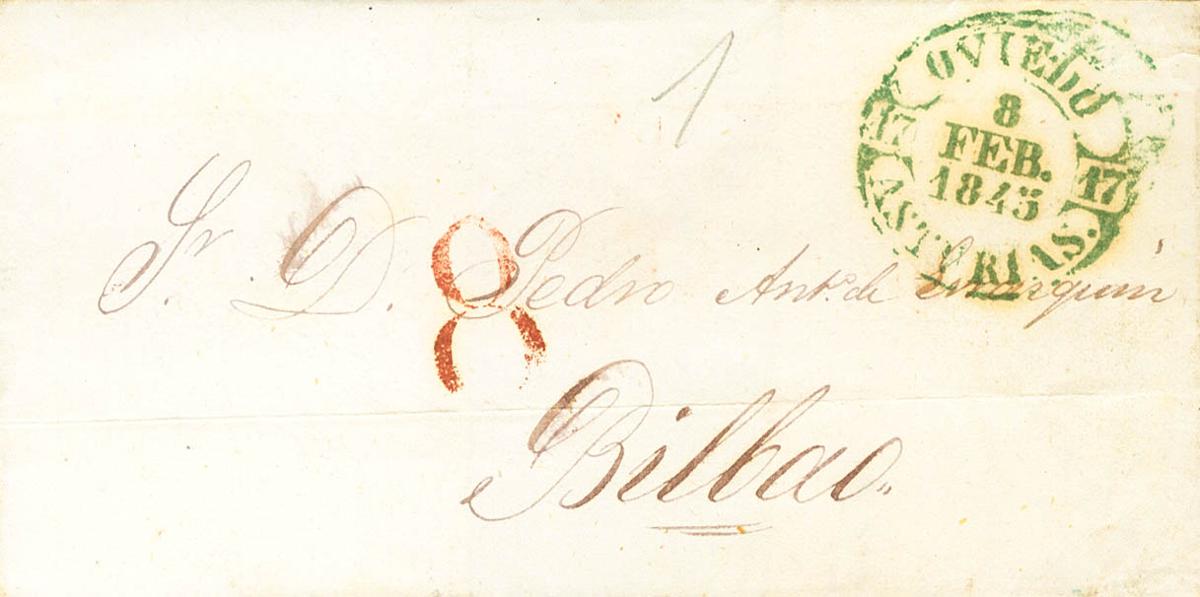 1
OVIEDO
17 8 17
FEB.
1845
ASTURIAS.
Sr. D. Pedro Anto. de
8
Bilbao